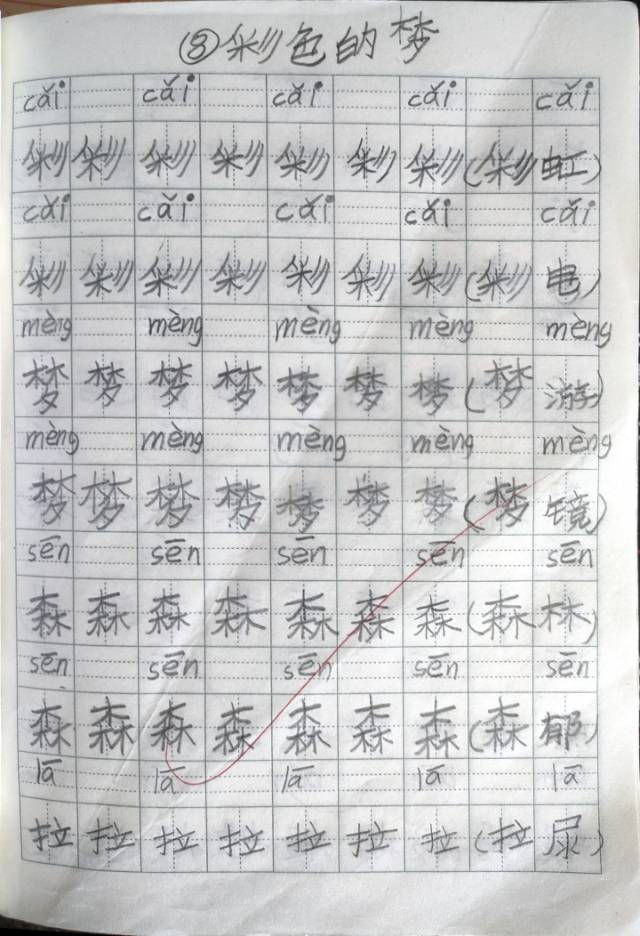 ⑧彩色的梦
cǎi cǎi cǎi cǎi cǎi
彩彩彩彩彩彩彩(彩虹)
cǎi cǎi cǎi cǎi cǎi
彩彩彩彩彩彩彩(彩电)
mèng mèng mèng mèng mèng
梦梦梦梦梦梦梦(梦游)
mèng mèng mèng mèng mèng
梦梦梦梦梦梦梦(梦境)
sēn sēn sēn sēn sēn
森森森森森森森(森林)
sēn sēn sēn sēn sēn
森森森森森森森(森郁)
lā lā lā lā lā
拉拉拉拉拉拉拉(拉尿)